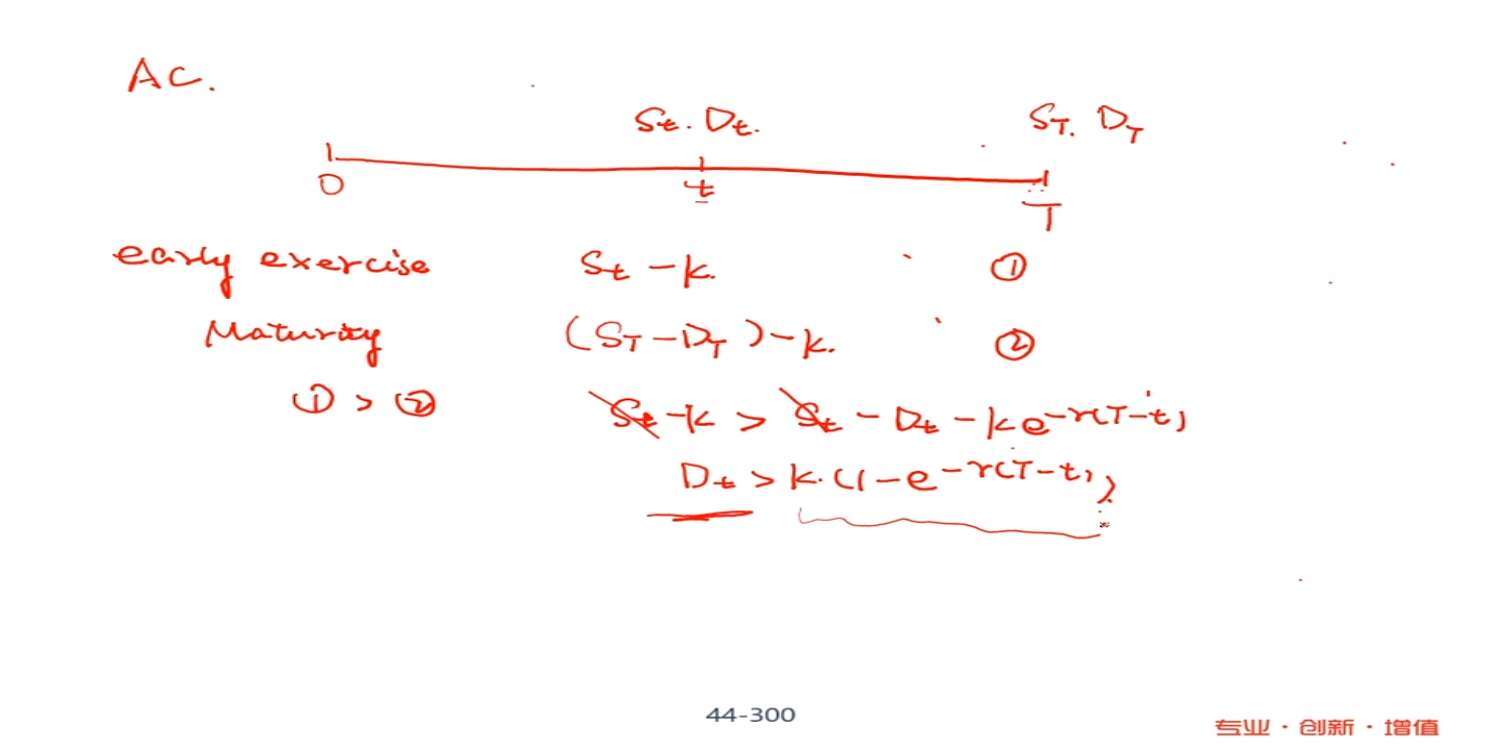 AC.
St. Dt.
ST. DT
0
t
T
early exercise St - K. ①
Maturity (ST - DT) - K. ②
① > ② St - K > St - Dt - Ke^-r(T-t)
Dt > K.(1 - e^-r(T-t))
44-300
专业·创新·增值